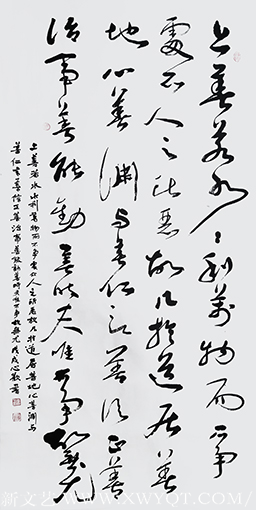 上善若水〻利萬物而不爭
處众人之所惡故几於道居善
地心善淵與善仁言善信正善
治事善能動善時夫唯不爭故無尤
上善若水水利萬物而不爭處众人之所惡故几於道居善地心善淵與
善仁言善信正善治事善能動善時夫唯不爭故無尤戊戌
新文艺 WWW.XWYQT.COM